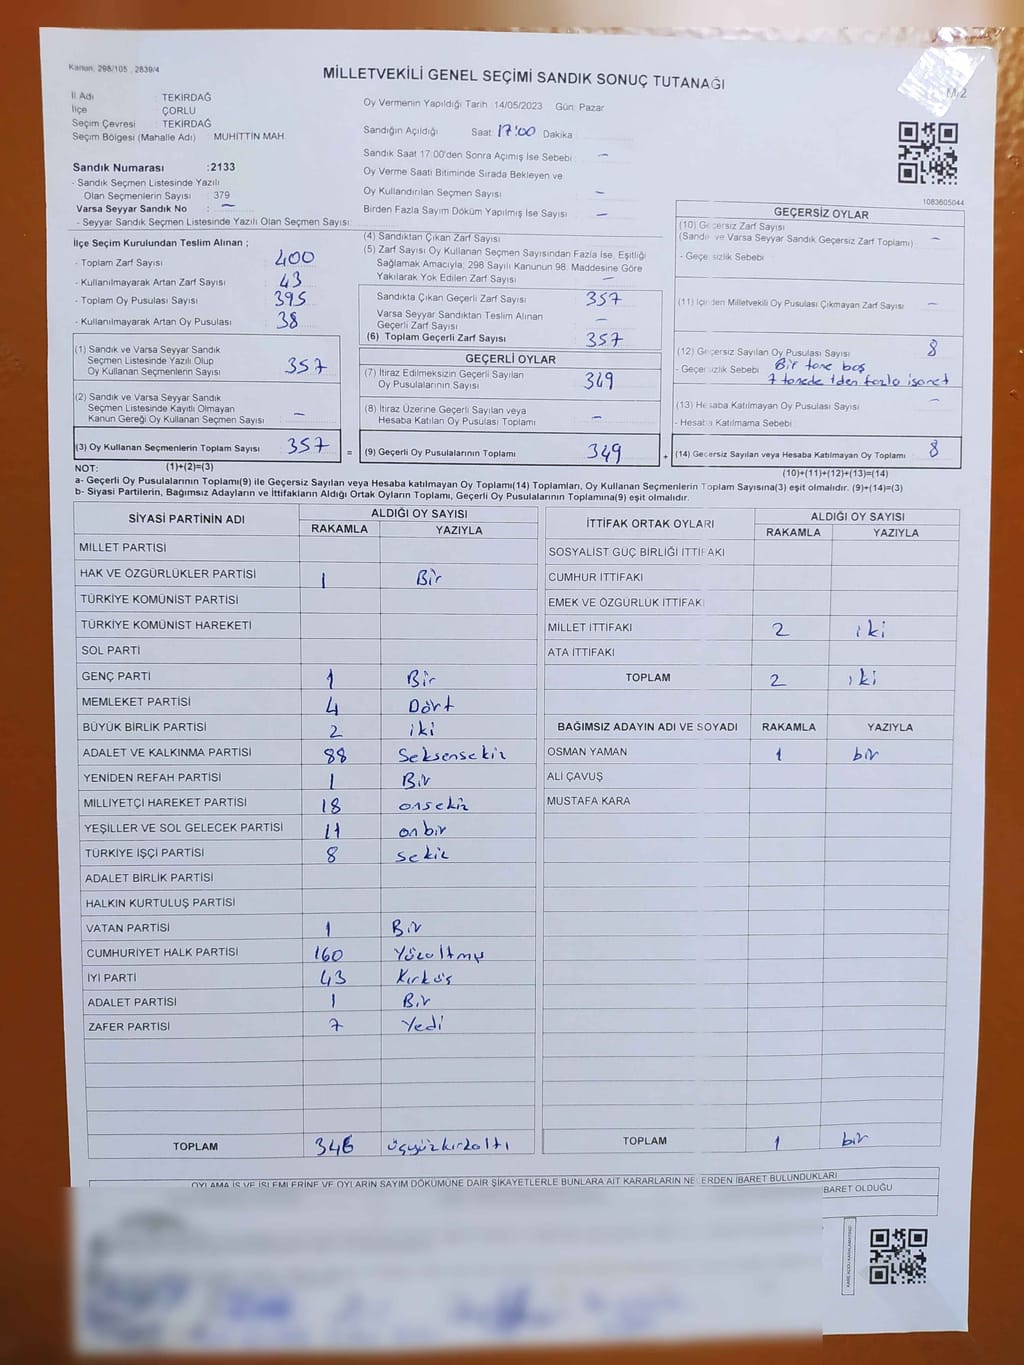 Kanun: 298/105 , 2839/4
MİLLETVEKİLİ GENEL SEÇİMİ SANDIK SONUÇ TUTANAĞI
İl Adı : TEKİRDAĞ
İlçe : ÇORLU
Seçim Çevresi : TEKİRDAĞ
Seçim Bölgesi (Mahalle Adı) : MUHİTTİN MAH
Sandık Numarası :2133
- Sandık Seçmen Listesinde Yazılı
Olan Seçmenlerin Sayısı : 379
Varsa Seyyar Sandık No : –
- Seyyar Sandık Seçmen Listesinde Yazılı Olan Seçmen Sayısı:
Oy Vermenin Yapıldığı Tarih :14/05/2023 Gün: Pazar
Sandığın Açıldığı Saat: 17:00 Dakika :
Sandık Saat 17:00'den Sonra Açımış İse Sebebi : –
Oy Verme Saati Bitiminde Sırada Bekleyen ve
Oy Kullandırılan Seçmen Sayısı : –
Birden Fazla Sayım Döküm Yapılmış İse Sayısı : –
1083605044
İlçe Seçim Kurulundan Teslim Alınan ;
- Toplam Zarf Sayısı : 400
- Kullanılmayarak Artan Zarf Sayısı : 43
- Toplam Oy Pusulası Sayısı : 395
- Kullanılmayarak Artan Oy Pusulası : 38
(1) Sandık ve Varsa Seyyar Sandık
Seçmen Listesinde Yazılı Olup
Oy Kullanan Seçmenlerin Sayısı : 357
(2) Sandık ve Varsa Seyyar Sandık
Seçmen Listesinde Kayıtlı Olmayan
Kanun Gereği Oy Kullanan Seçmen Sayısı : –
(3) Oy Kullanan Seçmenlerin Toplam Sayısı : 357
(4) Sandıktan Çıkan Zarf Sayısı :
(5) Zarf Sayısı Oy Kullanan Seçmen Sayısından Fazla İse, Eşitliği
Sağlamak Amacıyla; 298 Sayılı Kanunun 98. Maddesine Göre
Yakılarak Yok Edilen Zarf Sayısı : –
Sandıkta Çıkan Geçerli Zarf Sayısı : 357
Varsa Seyyar Sandıktan Teslim Alınan
Geçerli Zarf Sayısı : –
(6) Toplam Geçerli Zarf Sayısı : 357
GEÇERLİ OYLAR
(7) İtiraz Edilmeksizin Geçerli Sayılan
Oy Pusulalarının Sayısı : 349
(8) İtiraz Üzerine Geçerli Sayılan veya
Hesaba Katılan Oy Pusulası Toplamı : –
= (9) Geçerli Oy Pusulalarının Toplamı : 349
GEÇERSİZ OYLAR
(10) Geçersiz Zarf Sayısı
(Sandık ve Varsa Seyyar Sandık Geçersiz Zarf Toplamı) : –
- Geçersizlik Sebebi :
(11) İçinden Milletvekili Oy Pusulası Çıkmayan Zarf Sayısı : –
(12) Geçersiz Sayılan Oy Pusulası Sayısı : 8
- Geçersizlik Sebebi : Bir tane boş
7 tanede 1den fazla işaret
(13) Hesaba Katılmayan Oy Pusulası Sayısı : –
- Hesaba Katılmama Sebebi :
+ (14) Geçersiz Sayılan veya Hesaba Katılmayan Oy Toplamı : 8
NOT: (1)+(2)=(3)
(10)+(11)+(12)+(13)=(14)
a- Geçerli Oy Pusulalarının Toplamı(9) ile Geçersiz Sayılan veya Hesaba katılmayan Oy Toplamı(14) Toplamları, Oy Kullanan Seçmenlerin Toplam Sayısına(3) eşit olmalıdır. (9)+(14)=(3)
b- Siyasi Partilerin, Bağımsız Adayların ve İttifakların Aldığı Ortak Oyların Toplamı, Geçerli Oy Pusulalarının Toplamına(9) eşit olmalıdır.
SİYASİ PARTİNİN ADI ALDIĞI OY SAYISI
RAKAMLA YAZIYLA
MİLLET PARTİSİ
HAK VE ÖZGÜRLÜKLER PARTİSİ 1 Bir
TÜRKİYE KOMÜNİST PARTİSİ
TÜRKİYE KOMÜNİST HAREKETİ
SOL PARTİ
GENÇ PARTİ 1 Bir
MEMLEKET PARTİSİ 4 Dört
BÜYÜK BİRLİK PARTİSİ 2 iki
ADALET VE KALKINMA PARTİSİ 88 Seksensekiz
YENİDEN REFAH PARTİSİ 1 Bir
MİLLİYETÇİ HAREKET PARTİSİ 18 onsekiz
YEŞİLLER VE SOL GELECEK PARTİSİ 11 onbir
TÜRKİYE İŞÇİ PARTİSİ 8 sekiz
ADALET BİRLİK PARTİSİ
HALKIN KURTULUŞ PARTİSİ
VATAN PARTİSİ 1 Bir
CUMHURİYET HALK PARTİSİ 160 Yüzaltmış
İYİ PARTİ 43 Kırküç
ADALET PARTİSİ 1 Bir
ZAFER PARTİSİ 7 Yedi
TOPLAM 346 üçyüzkırkaltı
İTTİFAK ORTAK OYLARI ALDIĞI OY SAYISI
RAKAMLA YAZIYLA
SOSYALİST GÜÇ BİRLİĞİ İTTİFAKI
CUMHUR İTTİFAKI
EMEK VE ÖZGÜRLÜK İTTİFAKI
MİLLET İTTİFAKI 2 iki
ATA İTTİFAKI
TOPLAM 2 iki
BAĞIMSIZ ADAYIN ADI VE SOYADI RAKAMLA YAZIYLA
OSMAN YAMAN 1 bir
ALİ ÇAVUŞ
MUSTAFA KARA
TOPLAM 1 bir
OYLAMA İŞ VE İŞLEMLERİNE VE OYLARIN SAYIM DÖKÜMÜNE DAİR ŞİKAYETLERLE BUNLARA AİT KARARLARIN NELERDEN İBARET BULUNDUKLARI
İBARET OLDUĞU